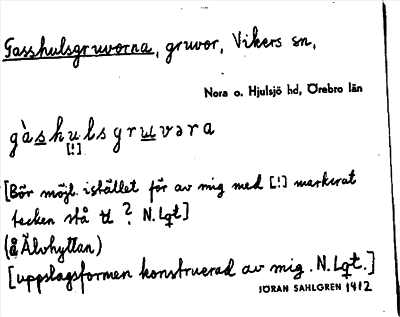 Gasshulsgruvorna, gruvor, Vikers sn,
Nora o. Hjulsjö hd, Örebro län
gàshulsgruvəra
[!]
[Bör möjl. istället för av mig med [!] markerat
tecken stå ? N. Lqt]
(å Älvhyttan)
[uppslagsformen konstruerad av mig. N. Lqt.]
JÖRAN SAHLGREN 1912